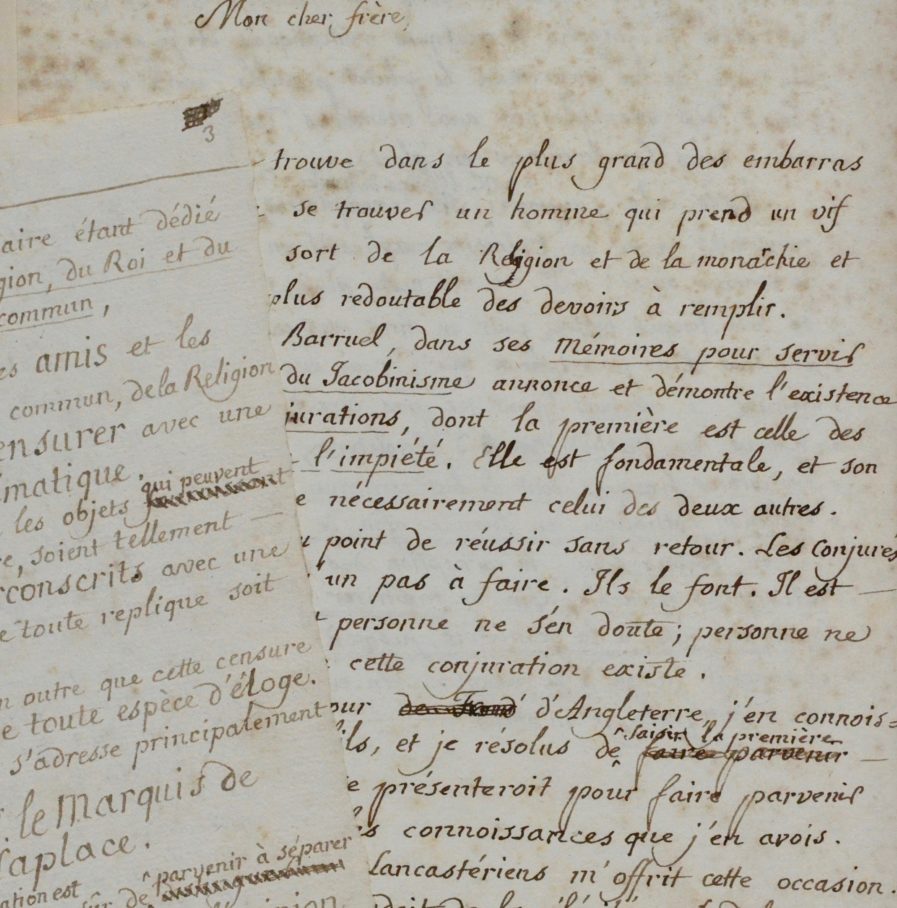 Mon cher frère,
trouve dans le plus grand des embarras
se trouver un homme qui prend un vif
sort de la Religion et de la monarchie et
plus redoutable des devoirs à remplir.
Barruel, dans ses Mémoires pour servir
du Jacobinisme annonce et démontre l'existence
jurations, dont la première est celle des
l'impiété. Elle est fondamentale, et son
e nécessairement celui des deux autres.
point de réussir sans retour. Les conjurés
'un pas à faire. Ils le font. Il est —
personne ne s'en doute; personne ne
cette conjuration existe.
our d'Angleterre, j'en connois=
saisir la première
ils, et je résolus de faire parvenir —
e présenteroit pour faire parvenir
s connoissances que j'en avois.
Lancastériens m'offrit cette occasion.
3
aire étant dédié
gion, du Roi et du
commun,
es amis et les
commun, de la Religion
ensurer avec une
matique.
qui peuvent
les objets
re, soient tellement —
rconscrits avec une
e toute replique soit
n outre que cette censure
e toute espèce d'éloge.
s'adresse principalement
le Marquis de
Laplace.
parvenir à séparer
ation est
de